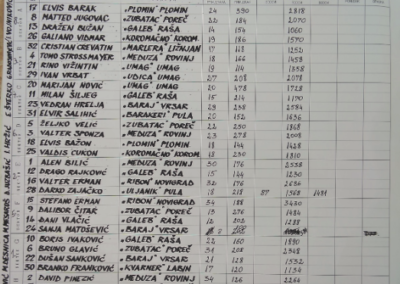 17 ELVIS BARAK "PLOMIN" PLOMIN 24 330 2818
8 MATTEO JUGOVAC "ZUBATAC" POREČ 22 184 2050
13 DRAŽEN BUŽAN "GALEB" RAŠA 14 154 1060
26 GALIANO VIDMAR "KOROMAČNO" KOROM. 19 186 1570
32 CRISTIAN CREVATIN "MARLERA" LIŽNJAN 17 118 1252
4 TOMO STROSSMAYER "MEDUZA" ROVINJ 18 166 1458
21 RINO VIŽINTIN "UMAG" UMAG 19 114 1358
29 IVAN VRBAT "UDICA" UMAG 27 208 2078
20 MARIJAN NOVIĆ "UMAG" UMAG 20 478 1728
11 MILAN ŠILJEG "GALEB" RAŠA 15 214 1190
23 VEDRAN HRELJA "BARAJ" VRSAR 29 288 2584
31 ELVIR SALINIĆ "BARAKERI" PULA 20 152 1636
5 ŽELJKO VELIĆ "ZUBATAC" POREČ 22 250 1868
3 VALTER SPONZA "MEDUZA" ROVINJ 23 278 2008
18 ELVIS BAŽON "PLOMIN" PLOMIN 18 144 1428
25 VALDIS CUKON "KOROMAČNO" KOROM. 18 230 1810
1 ALEN BILIĆ "MEDUZA" ROVINJ 30 176 2538
12 DRAGO RAJKOVIĆ "GALEB" RAŠA 15 144 1230
16 VALTER ERMAN "RIBON" NOVIGRAD 32 176 2686
28 DARKO ZAJAČKO "ULJANIK" PULA 18 218 87 1568 1481
15 STEFANO ERMAN "RIBON" NOVIGRAD 34 188 3420
9 DALIBOR ČITAR "ZUBATAC" POREČ 13 276 1484
14 ĐANI VLAČIĆ "GALEB" RAŠA 24 112 1288
24 SANJA MATOŠEVIĆ "BARAJ" VRSAR
10 BORIS IVAKOVIĆ "GALEB" RAŠA 22 160 1880
6 BRUNO GLAVIĆ "ZUBATAC" POREČ 31 202 2348
22 DUŠAN SANKOVIĆ "BARAJ" VRSAR 21 128 1532
30 BRANKO FRANKOVIĆ "KVARNER" LABIN 17 120 1134
2 DAVID PINEZIĆ "MEDUZA" ROVINJ 34 126 2266